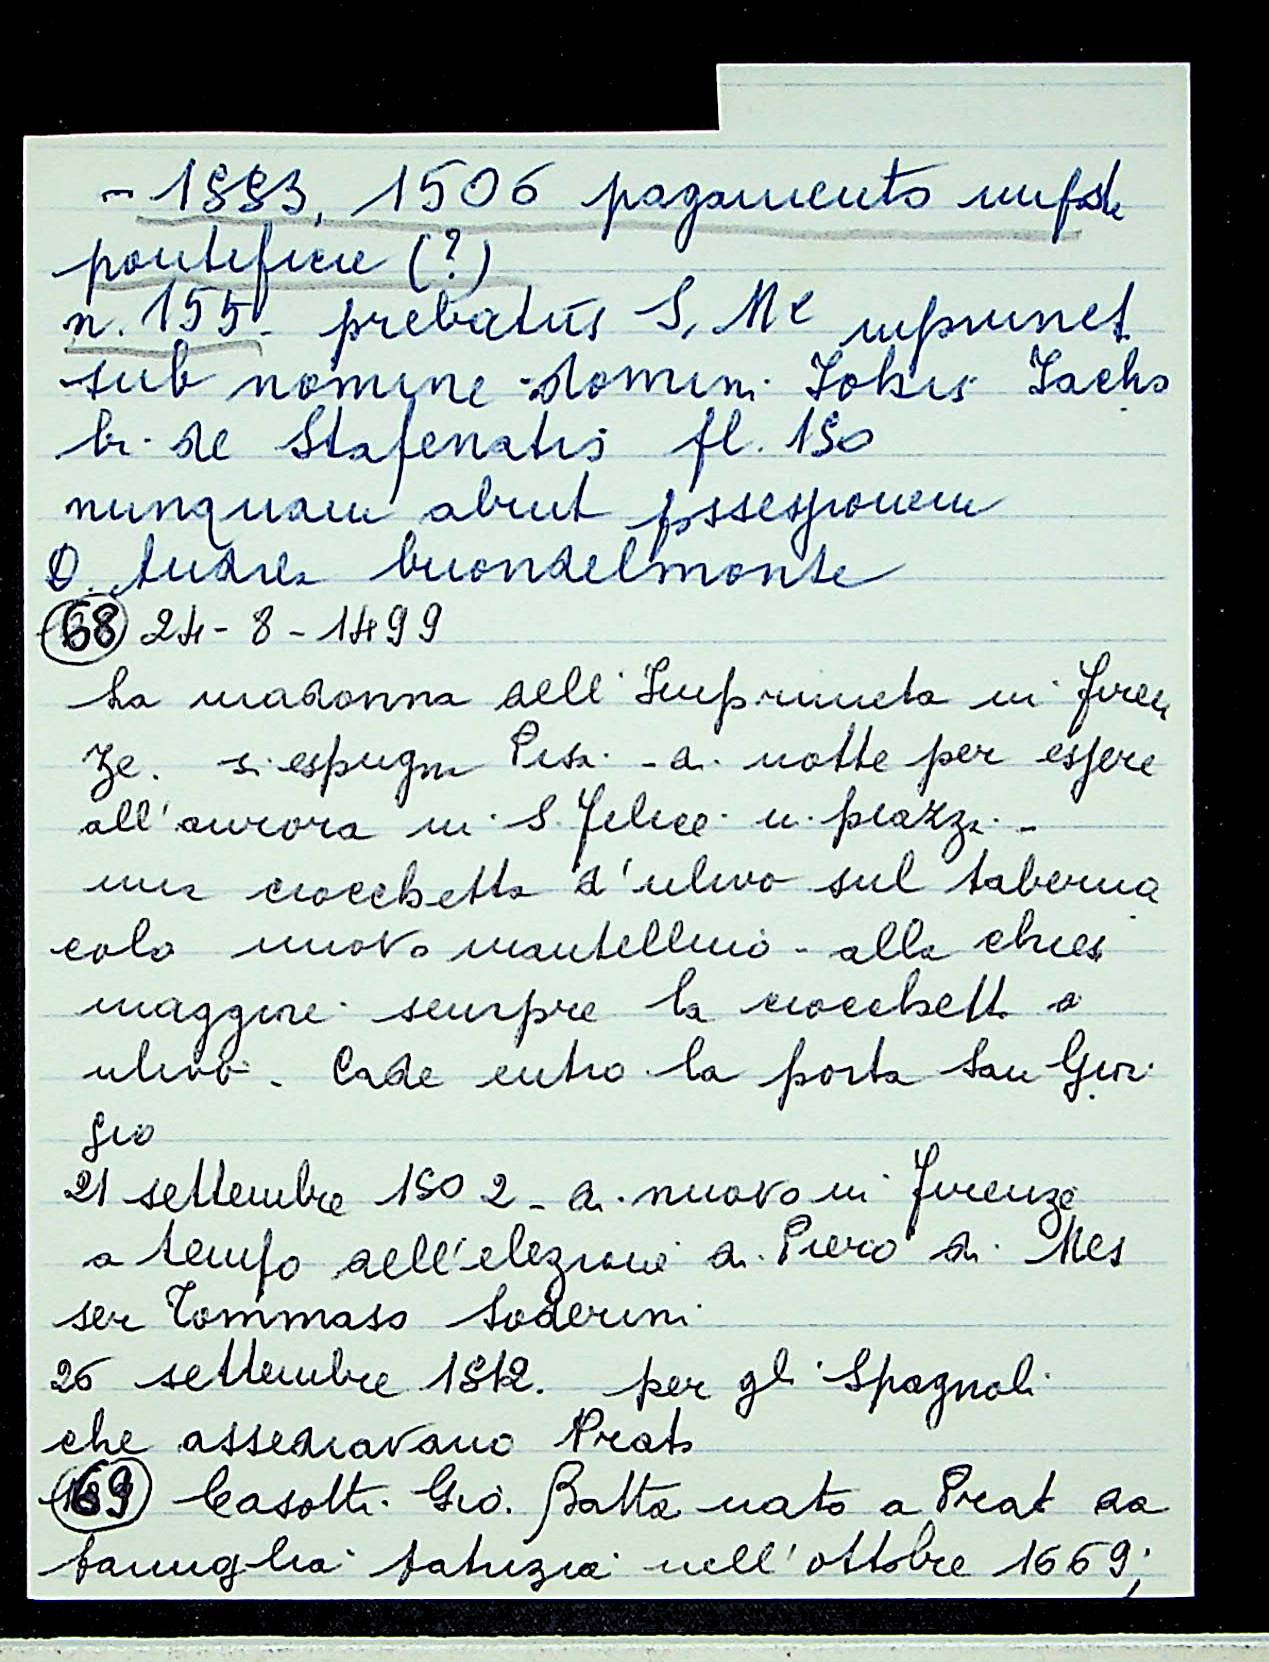 - 1553, 1506 pagamento imposte
pontificie (?)
n. 155 - prebatus S. Me inprunet
sub nomine domini Johis Jacho
bi de Stafenatis fl. 150
nunquam abuit possessionem
D. Andrea buondelmonte
68 24-8-1499
La madonna dell'Impruneta in Firen
ze. si espugni Pisa - di notte per essere
all'aurora in S. Felice in piazza -
una ciocchetta d'ulivo sul taberna
colo nuovo mantellino - alla chiesa
maggiore sempre la ciocchetta d
ulivo. Cade entro la porta San Gior
gio
21 settembre 1502 - di nuovo in Firenze
a tempo dell'elezione di Piero di Mes
ser Tommaso Soderini
26 settembre 1512. per gli Spagnoli
che assediavano Prato
69 Casotti Gio. Batta nato a Prato da
famiglia patrizia nell'ottobre 1669;